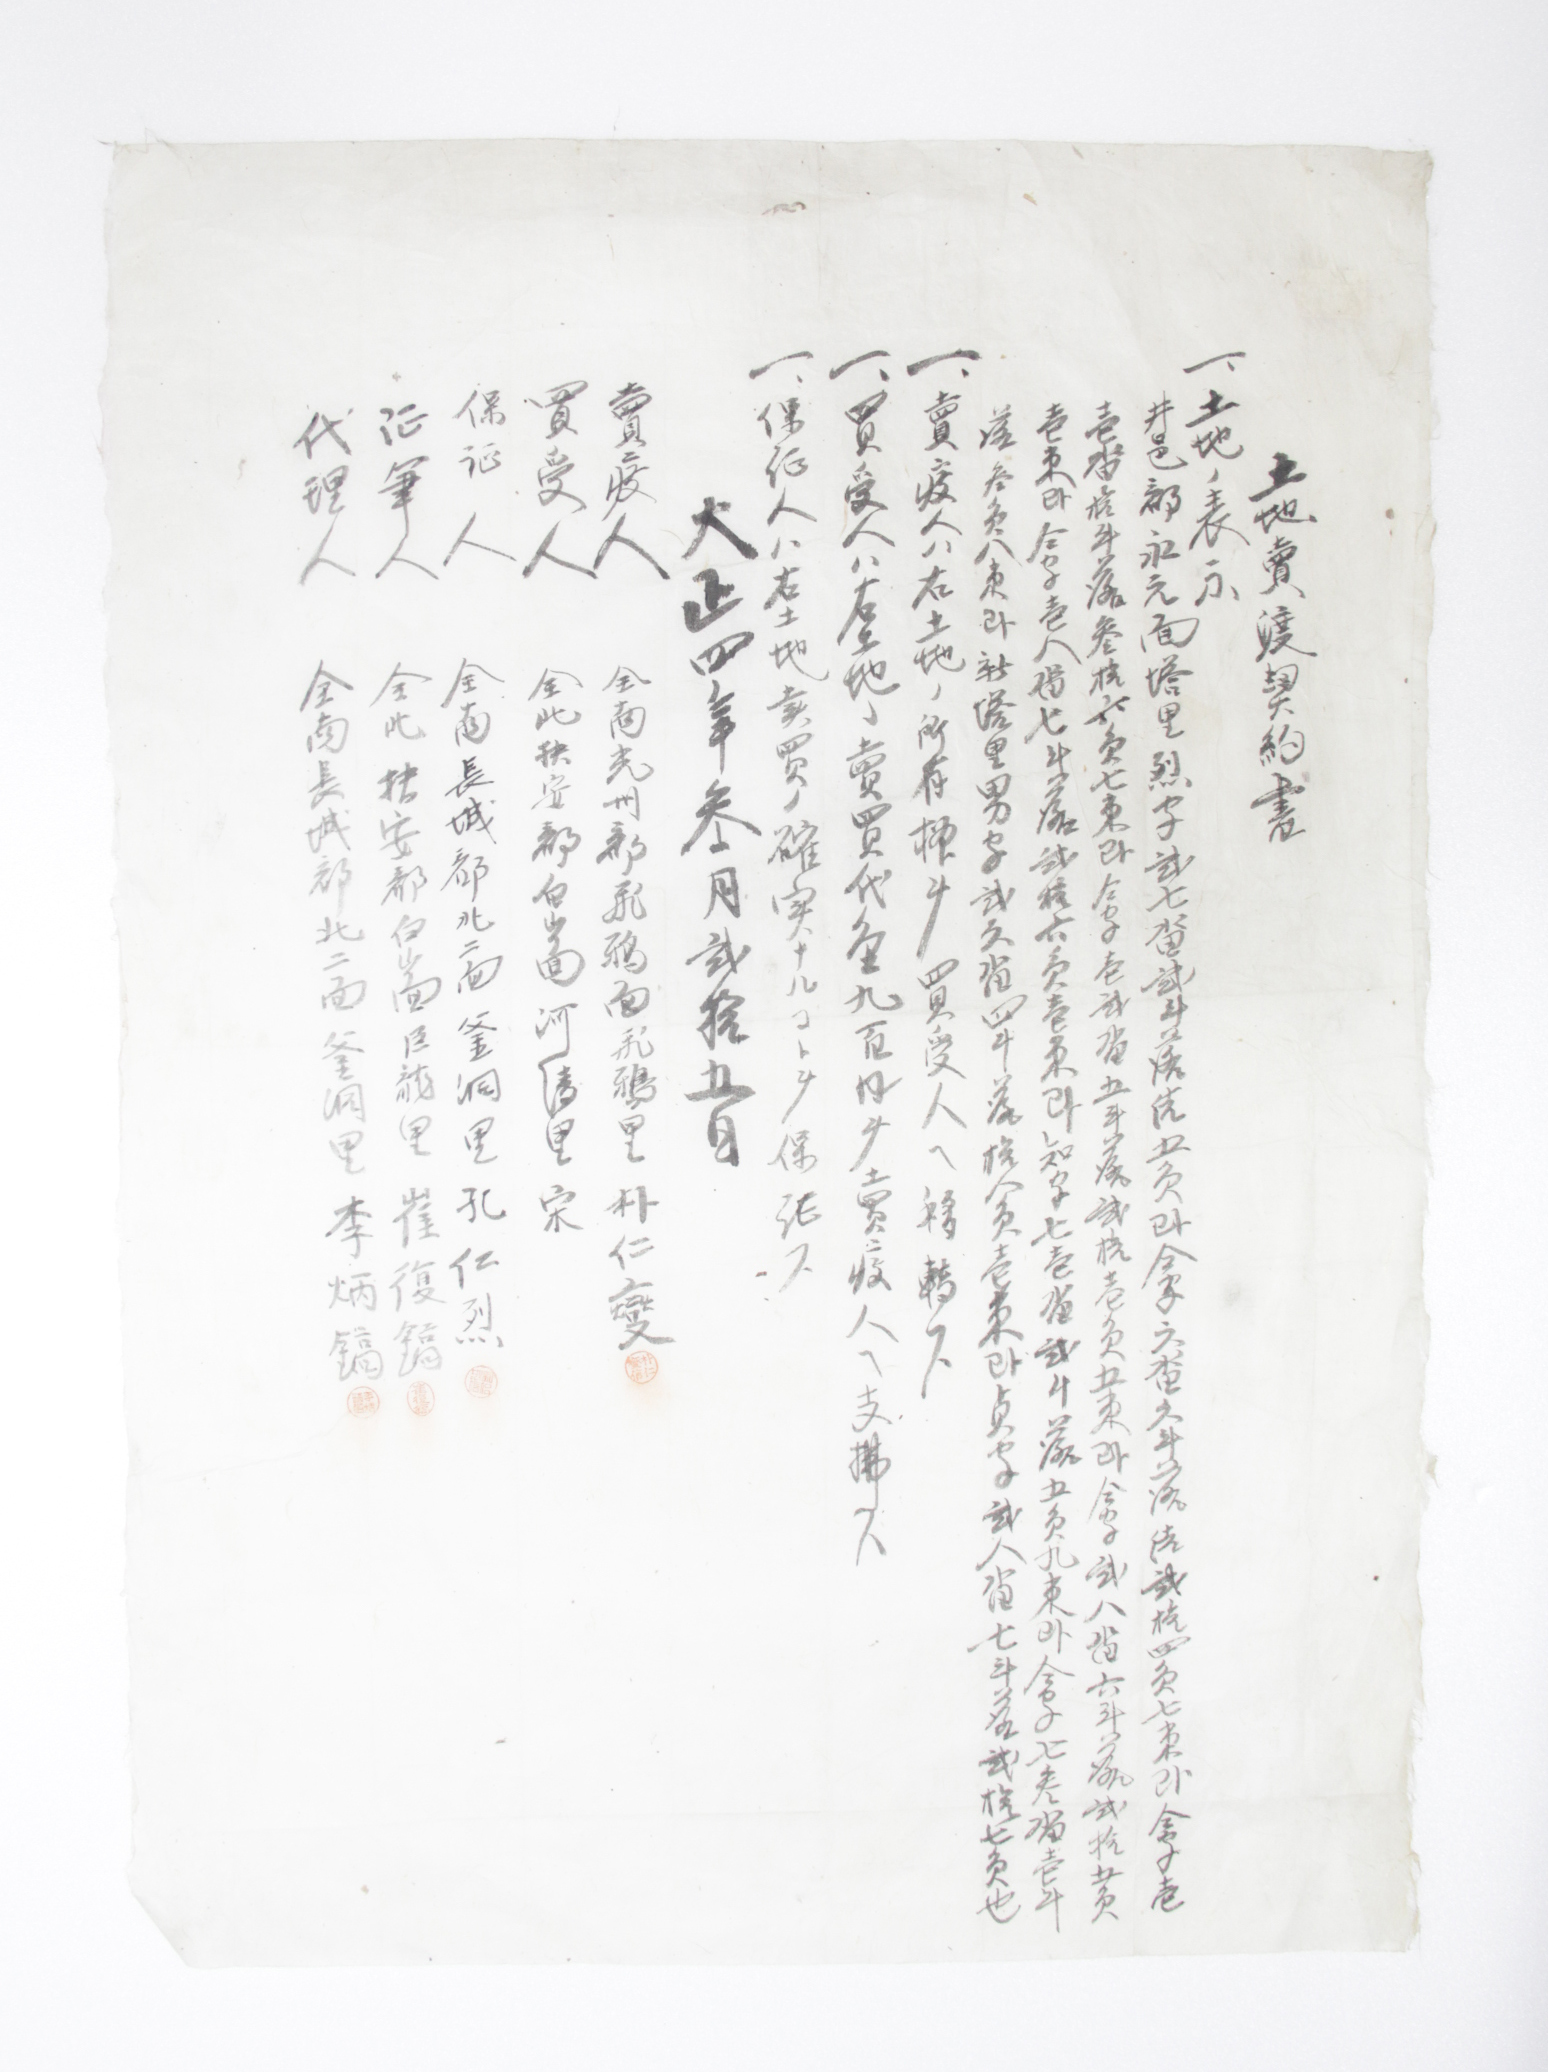 土地賣渡契約書
一、土地ノ表示
井邑郡永元面塔里烈字貳七畓貳斗落結五負內仝字六畓六斗落結貳拾四負七束內仝字壱
壱畓拾斗落叁拾六負七束內仝字壱貳畓五斗落貳拾壱負五束內仝字貳八畓六斗落貳拾五負
壱束內仝字壱八畓七斗落貳拾六負壱束內知字七壱畓貳斗落五負九束內仝字七叁畓壱斗
落叁負八束內新塔里男字貳六畓四斗落拾八負壱束內貞字貳八畓七斗落貳拾七負也
一、賣渡人ハ右土地ノ所有権ヲ買受人ヘ移轉ス
一、買受人ハ右土地ノ賣買代金九百円ヲ賣渡人ヘ支拂フ
一、保証人ハ右土地賣買ノ確実ナルコトヲ保証ス
大正四年叁月貳拾五日
賣渡人 全南光州郡飛鴉面飛鴉里 朴仁燮
買受人 全北扶安郡白山面河淸里 宋
保証人 全南長城郡北二面釜洞里 孔仁烈
証筆人 全北扶安郡白山面巨龍里 崔復鎬
代理人 全南長城郡北二面釜洞里 李炳鎬